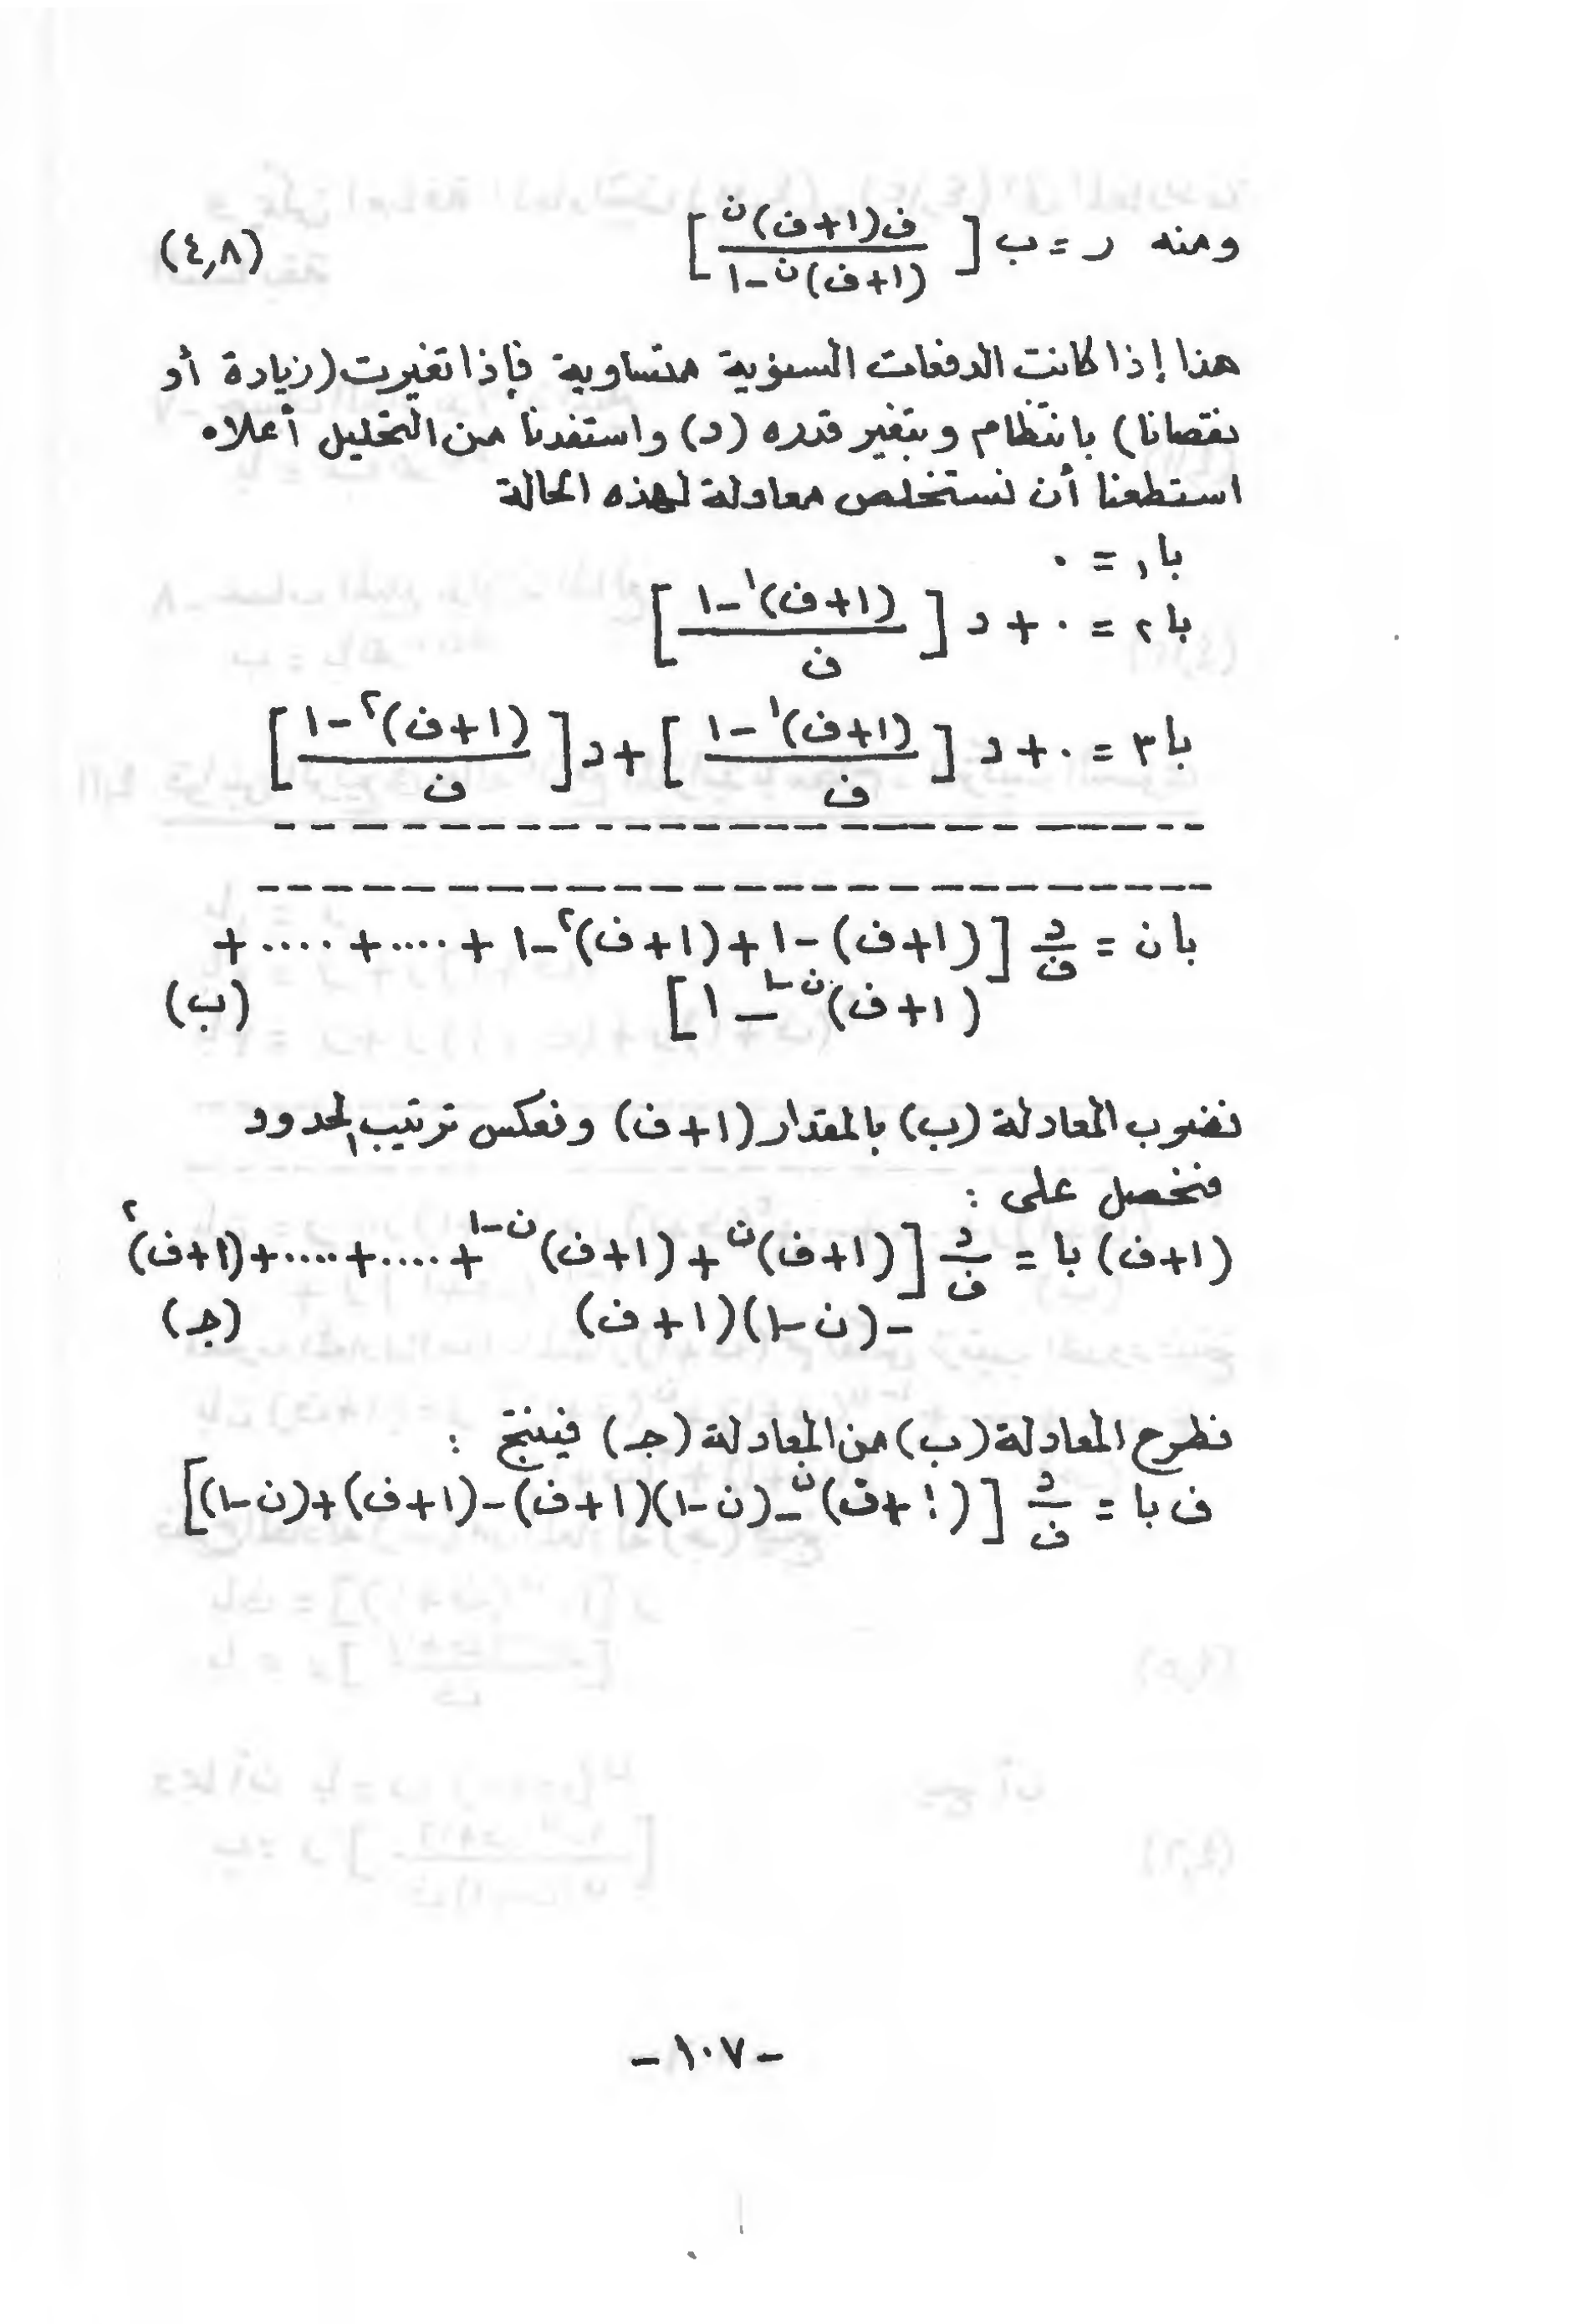 ومنه ر = ب [ ف(١+ف)^ن / (١+ف)^ن -١ ] (٤,٨)
هذا إذا كانت الدفعات السنوية متساوية فإذا تغيرت (زيادة أو
نقصانا) بانتظام وبتغير قدره (د) واستفدنا من التحليل أعلاه
استطعنا أن نستخلص معادلة لهذه الحالة
با١ = ٠
با٢ = ٠ + د [ (١+ف)^١ -١ / ف ]
با٣ = ٠ + د [ (١+ف)^١ -١ / ف ] + د [ (١+ف)^٢ -١ / ف ]
بان = د/ف [ (١+ف) -١ + (١+ف)^٢ -١ + .... + .... +
(١+ف)^ن-١ - ١ ] (ب)
نضرب المعادلة (ب) بالمقدار (١+ف) ونعكس ترتيب الحدود
فنحصل على :
(١+ف) با = د/ف [ (١+ف)^ن + (١+ف)^ن-١ + .... + .... + (١+ف)^٢
-(ن-١)(١+ف) (جـ)
نطرح المعادلة (ب) من المعادلة (جـ) فينتج :
ف با = د/ف [ (١+ف)^ن -(ن-١)(١+ف)-(١+ف)+(ن-١) ]
- ١٠٧ -